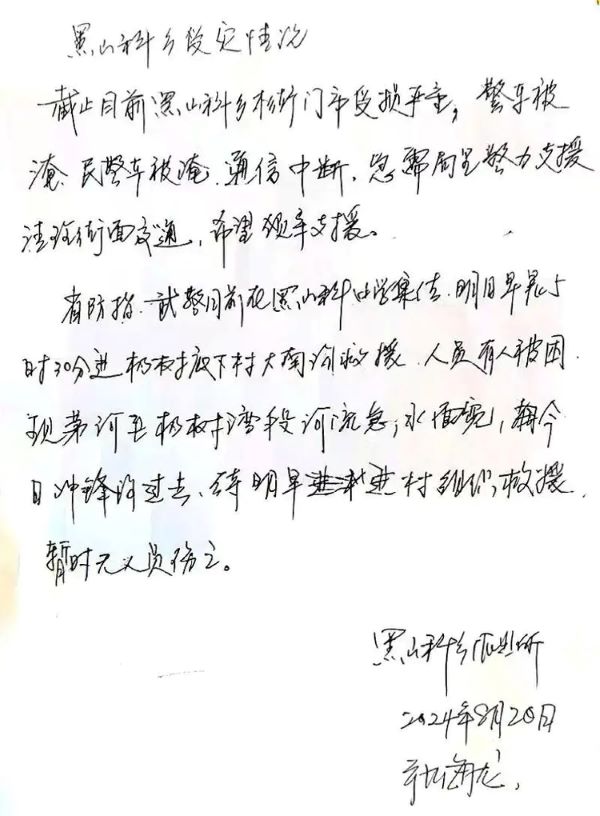 黑山科乡受灾情况
截止目前黑山科乡村街门市受损严重，警车被
淹、民警车被淹、通信中断，急需局里警力支援
清理街面交通，希望领导支援。
有防指、武警目前在黑山科中学集结，明日早晨5
时30分进杨树底下村大南沟救援，人员有人被困，
现第河至杨树湾段河流急，水面宽，
日冲锋过去、待明早进村组织救援，
暂时无人员伤亡。
黑山科乡派出所
2024年8月20日
海龙